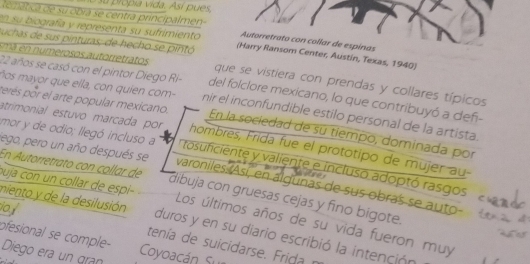 su propia vida. Así pues,
temática de su obra se centra principalmen-
en su biografía y representa su sufrimiento
muchas de sus pinturas, de hecho se pintó
en numerosos autorretratos
22 años se casó con el pintor Diego Ri-
ños mayor que ella, con quien com-
terés por el arte popular mexicano.
atrimonial estuvo marcada por
mor y de odio; llegó incluso a
ego, pero un año después se
En Autorretrato con collar de
buja con un collar de espi-
miento y de la desilusión
ofesional se comple-
Diego era un gran
Autorretrato con collar de espinas
(Harry Ransom Center, Austin, Texas, 1940)
que se vistiera con prendas y collares típicos
del folclore mexicano, lo que contribuyó a defi-
nir el inconfundible estilo personal de la artista.
En la sociedad de su tiempo, dominada por
hombres, Frida fue el prototipo de mujer au-
tosuficiente y valiente e incluso adoptó rasgos
varoniles. Así, en algunas de sus obras se auto-
dibuja con gruesas cejas y fino bigote.
Los últimos años de su vida fueron muy
duros y en su diario escribió la intención
tenía de suicidarse. Frida
Coyoacán